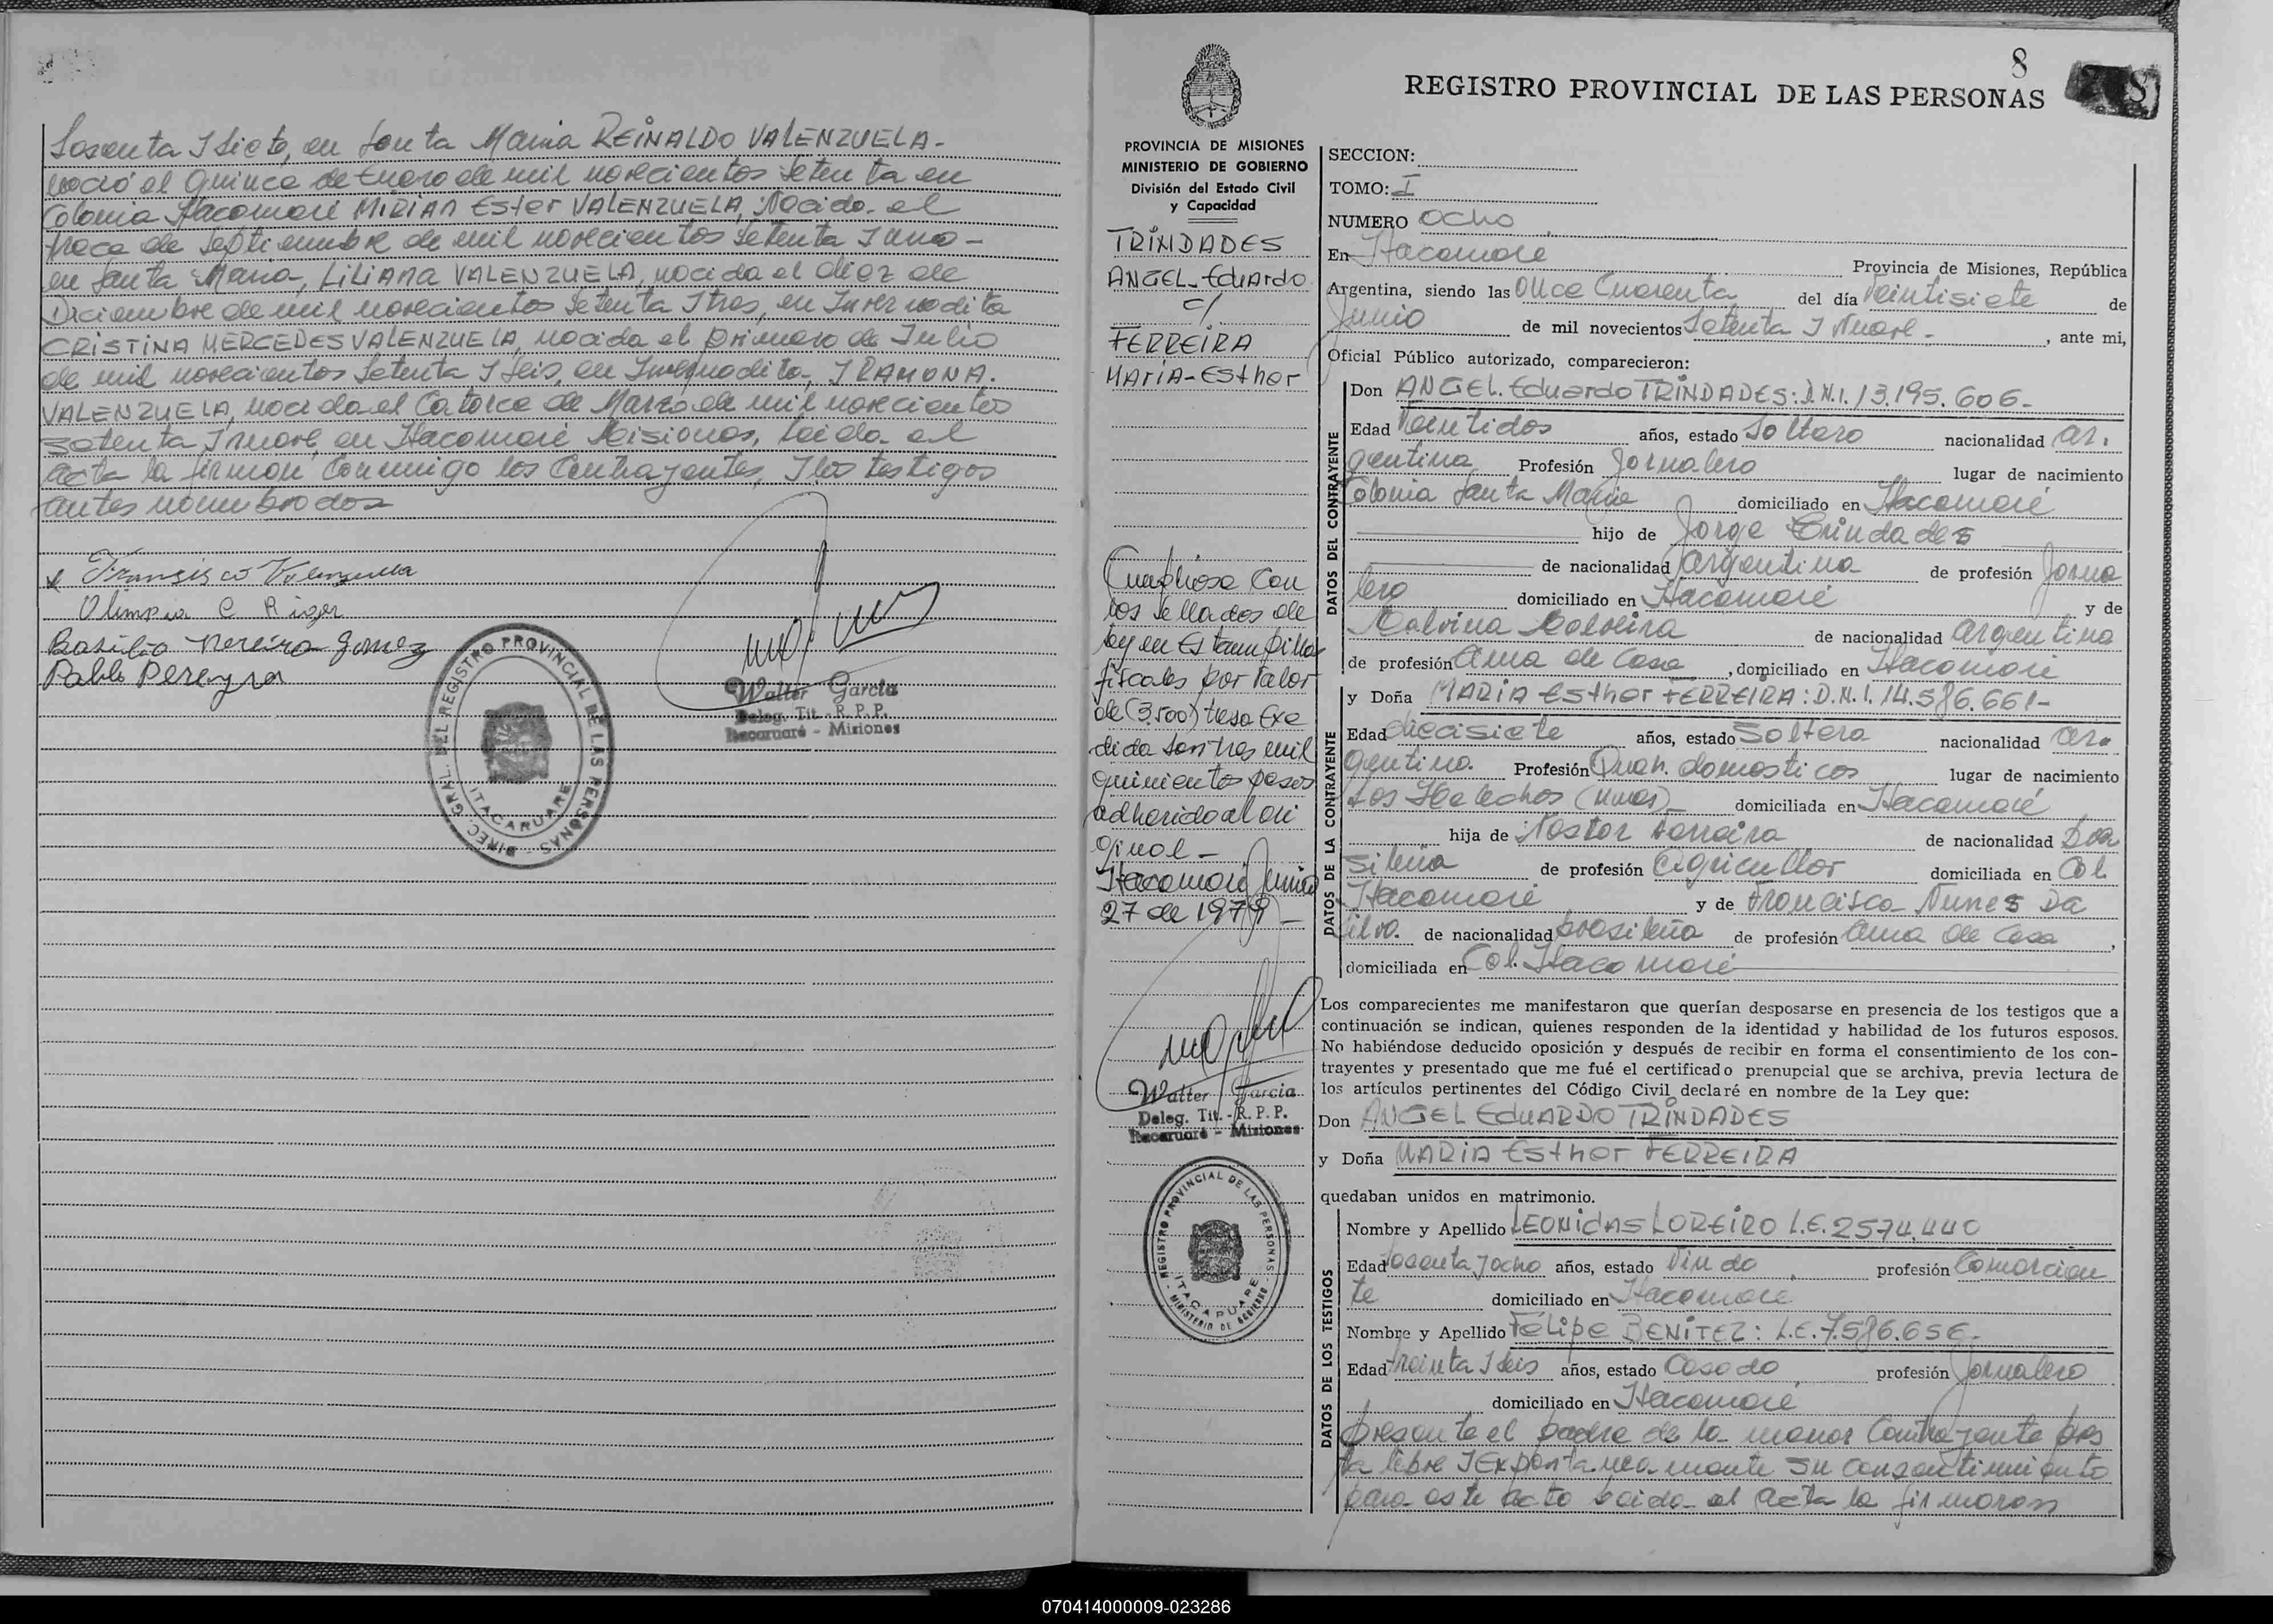 Sesenta y siete, en Santa Maria REINALDO VALENZUELA-
nació el Quince de Enero de mil novecientos setenta en
Colonia Itacaruaré MIRIAN Ester VALENZUELA, Nacida el
trece de Septiembre de mil novecientos setenta y uno-
en Santa Maria, LILIANA VALENZUELA, nacida el diez de
Diciembre de mil novecientos setenta y tres, en
CRISTINA MERCEDES VALENZUELA, nacida el primero de Julio
de mil novecientos setenta y seis, en y RAMONA.
VALENZUELA, nacida el Catorce de Marzo de mil novecientos
setenta y nueve, en Itacaruaré Misiones, leída el
acta la firman conmigo los Contrayentes, y los testigos
antes nombrados
Fransisco Valenzuella
Olimpia C Riger
Basilio Pereira Gomez
Pablo Pereyra
DIREC. GRAL. DEL REGISTRO PROVINCIAL DE LAS PERSONAS - ITACARUARE
Walter Garcia
Deleg. Tit. - R. P. P.
Itacaruaré - Misiones
8
REGISTRO PROVINCIAL DE LAS PERSONAS
PROVINCIA DE MISIONES
MINISTERIO DE GOBIERNO
División del Estado Civil
y Capacidad
TRINDADES
ANGEL-Eduardo
c/
FERREIRA
MARIA-Esther
los sellados de
ley en Estampillas
fiscales por valor
de (3.500)
son tres mil
quinientos pesos
adherido al ori
ginal-
Itacaruaré Junio
27 de 1979-
Walter Garcia
Deleg. Tit. - R. P. P.
Itacaruaré - Misiones
REGISTRO PROVINCIAL DE LAS PERSONAS - MINISTERIO DE GOBIERNO
ITACARUARE
SECCION:
TOMO: I
NUMERO Ocho
En Itacaruare Provincia de Misiones, República
Argentina, siendo las Once Cuarenta del día Veintisiete de
Junio de mil novecientos Setenta y Nueve- , ante mi,
Oficial Público autorizado, comparecieron:
DATOS DEL CONTRAYENTE
Don ANGEL. Eduardo TRINDADES: D.N.I. 13.195.606-
Edad Veintidos años, estado Soltero nacionalidad Ar.
gentina Profesión Jornalero lugar de nacimiento
Colonia Santa Maria domiciliado en Itacaruaré
hijo de Jorge Trindades
de nacionalidad Argentina de profesión Jorna
lero domiciliado en Itacaruaré y de
Malvina de nacionalidad Argentina
de profesión Ama de Casa , domiciliado en Itacaruaré
DATOS DE LA CONTRAYENTE
y Doña MARIA Esther FERREIRA: D.N.I. 14.586.661-
Edad diecisiete años, estado Soltera nacionalidad Ar-
gentina. Profesión Queh. domesticos lugar de nacimiento
Los Helechos (Mnes) domiciliada en Itacaruaré
hija de Nestor Ferreira de nacionalidad Bra
sileña de profesión Agricultor domiciliada en Col
Itacaruaré y de Francisca Nunes Da
Silva. de nacionalidad brasileña de profesión Ama de Casa ,
domiciliada en Col. Itacaruaré
Los comparecientes me manifestaron que querían desposarse en presencia de los testigos que a
continuación se indican, quienes responden de la identidad y habilidad de los futuros esposos.
No habiéndose deducido oposición y después de recibir en forma el consentimiento de los con-
trayentes y presentado que me fué el certificado prenupcial que se archiva, previa lectura de
los artículos pertinentes del Código Civil declaré en nombre de la Ley que:
Don ANGEL EDUARDO TRINDADES
y Doña MARIA Esther FERREIRA
quedaban unidos en matrimonio.
DATOS DE LOS TESTIGOS
Nombre y Apellido LEONIDAS LOREIRO L.E. 2574.440
Edad Sesenta y ocho años, estado Viudo profesión Comercian
te domiciliado en Itacaruaré
Nombre y Apellido Felipe BENITEZ: L.E. 7.586.656-
Edad treinta y seis años, estado Casado profesión Jornalero
domiciliado en Itacaruaré
presente el padre de la menor Contrayente pres
ta libre y Expontaneamente su consentimiento
para este acto leida el acta la firmaron
070414000009-023286